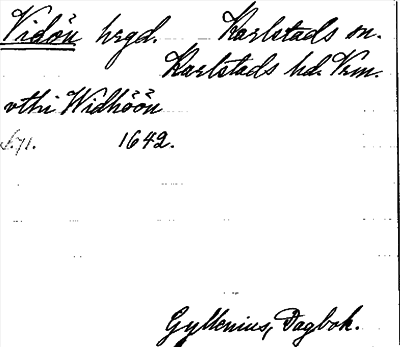 Vidön hrgd. Karlstads sn.
Karlstads hd. Vrm.
vthi Widhöön
s. 71. 1642.
Gyllenius, Dagbok.